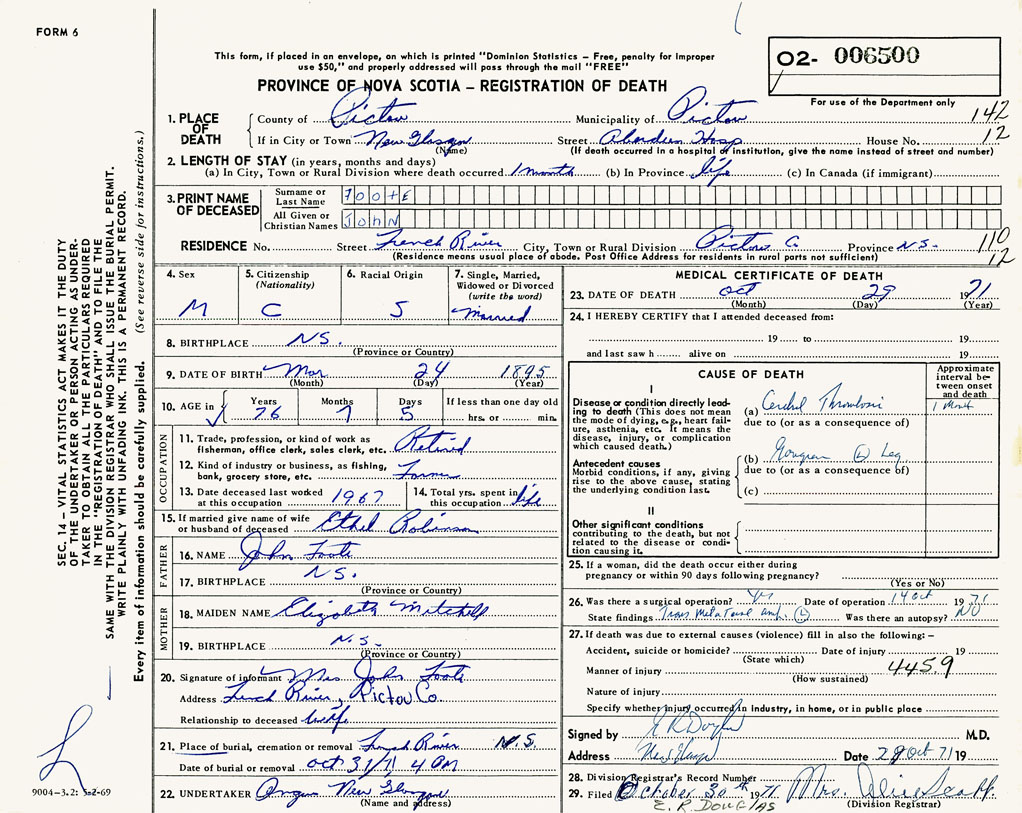 FORM 6
This form, if placed in an envelope, on which is printed "Dominion Statistics – Free, penalty for improper
use $50," and properly addressed will pass through the mail "FREE"
O2- 006500
PROVINCE OF NOVA SCOTIA – REGISTRATION OF DEATH
For use of the Department only
1. PLACE OF DEATH
County of Pictou Municipality of Pictou 142
If in City or Town New Glasgow Street Aberdeen Hosp House No. 12
(Name) (If death occurred in a hospital or institution, give the name instead of street and number)
2. LENGTH OF STAY (in years, months and days)
(a) In City, Town or Rural Division where death occurred 1 month (b) In Province life (c) In Canada (if immigrant)
3. PRINT NAME OF DECEASED
Surname or Last Name FOOTE
All Given or Christian Names JOHN
RESIDENCE No. Street French River City, Town or Rural Division Pictou C. Province N.S. 110
(Residence means usual place of abode. Post Office Address for residents in rural parts not sufficient) 12
4. Sex M
5. Citizenship (Nationality) C
6. Racial Origin S
7. Single, Married, Widowed or Divorced (write the word) Married
8. BIRTHPLACE N.S.
(Province or Country)
9. DATE OF BIRTH Mar 24 1895
(Month) (Day) (Year)
10. AGE in Years 76 Months 7 Days 5 If less than one day old hrs. or min.
OCCUPATION
11. Trade, profession, or kind of work as fisherman, office clerk, sales clerk, etc. Retired
12. Kind of industry or business, as fishing, bank, grocery store, etc. Farmer
13. Date deceased last worked at this occupation 1967
14. Total yrs. spent in this occupation life
15. If married give name of wife or husband of deceased Ethel Robinson
FATHER
16. NAME John Foote
17. BIRTHPLACE N.S.
(Province or Country)
MOTHER
18. MAIDEN NAME Elizabeth Mitchell
19. BIRTHPLACE N.S.
(Province or Country)
20. Signature of informant Mrs John Foote
Address French River, Pictou Co.
Relationship to deceased Wife
21. Place of burial, cremation or removal French River N.S.
Date of burial or removal Oct 31/71 4 PM
22. UNDERTAKER New Glasgow
(Name and address)
MEDICAL CERTIFICATE OF DEATH
23. DATE OF DEATH Oct 29 1971
(Month) (Day) (Year)
24. I HEREBY CERTIFY that I attended deceased from:
19 to 19
and last saw h alive on 19
CAUSE OF DEATH
Approximate interval between onset and death
I
Disease or condition directly leading to death (This does not mean the mode of dying, e.g., heart failure, asthenia, etc. It means the disease, injury, or complication which caused death.)
(a) Cerebral Thrombosis 1 Month
due to (or as a consequence of)
Antecedent causes
Morbid conditions, if any, giving rise to the above cause, stating the underlying condition last.
(b) Gangrene (L) Leg
due to (or as a consequence of)
(c)
II
Other significant conditions contributing to the death, but not related to the disease or condition causing it.
25. If a woman, did the death occur either during pregnancy or within 90 days following pregnancy?
(Yes or No)
26. Was there a surgical operation? Yes Date of operation 14 Oct 1971
State findings Trans Metatarsal amp. (L) Was there an autopsy? NO
27. If death was due to external causes (violence) fill in also the following: –
Accident, suicide or homicide? Date of injury 19
(State which)
Manner of injury 445.9
(How sustained)
Nature of injury
Specify whether injury occurred in industry, in home, or in public place
Signed by M.D.
Address New Glasgow Date 29 Oct 71 19
28. Division Registrar's Record Number
29. Filed October 30th 1971 Mrs.
E. R. DOUGLAS (Division Registrar)
SEC. 14 – VITAL STATISTICS ACT MAKES IT THE DUTY
OF THE UNDERTAKER OR PERSON ACTING AS UNDERTAKER TO OBTAIN ALL THE PARTICULARS REQUIRED
IN THE "REGISTRATION OF DEATH" AND TO FILE THE
SAME WITH THE DIVISION REGISTRAR WHO SHALL ISSUE THE BURIAL PERMIT.
WRITE PLAINLY WITH UNFADING INK. THIS IS A PERMANENT RECORD.
Every item of information should be carefully supplied. (See reverse side for instructions.)
9004-3.2: 5-2-69